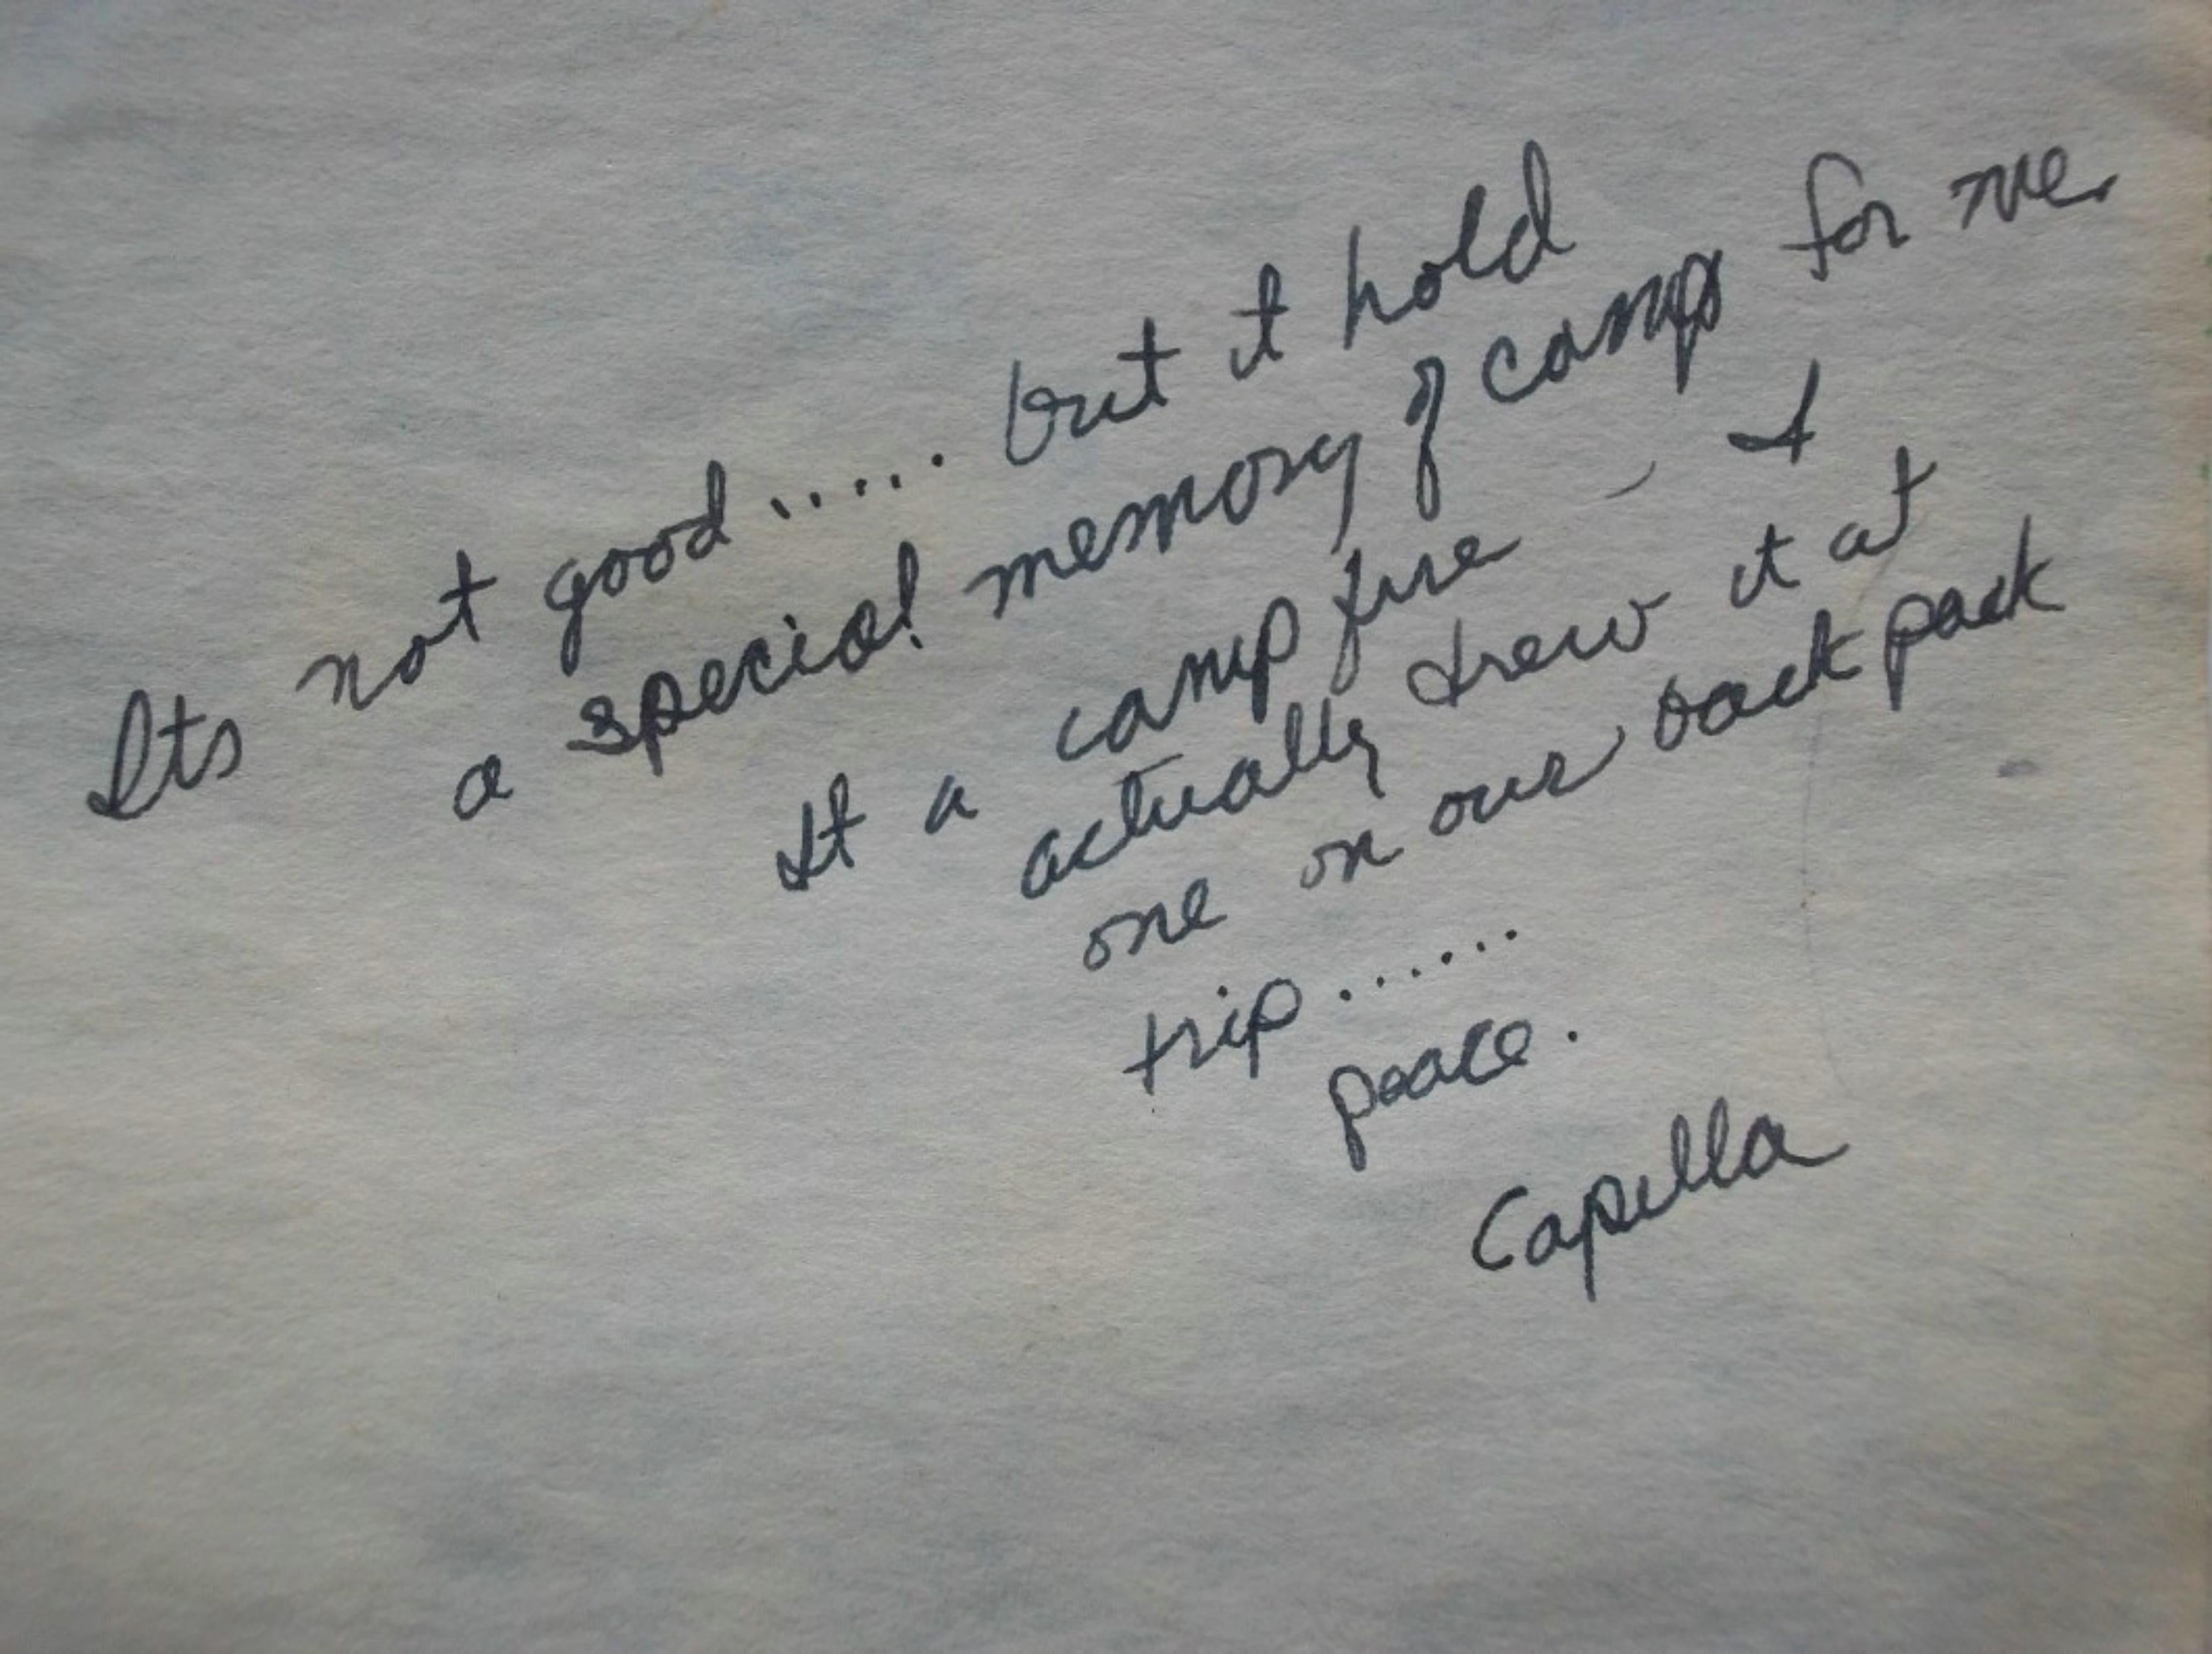 Its not good..... but it hold
a special memory of camp for me.
It a camp fire - I
actually drew it at
one on our back pack
trip......
peace.
Capella